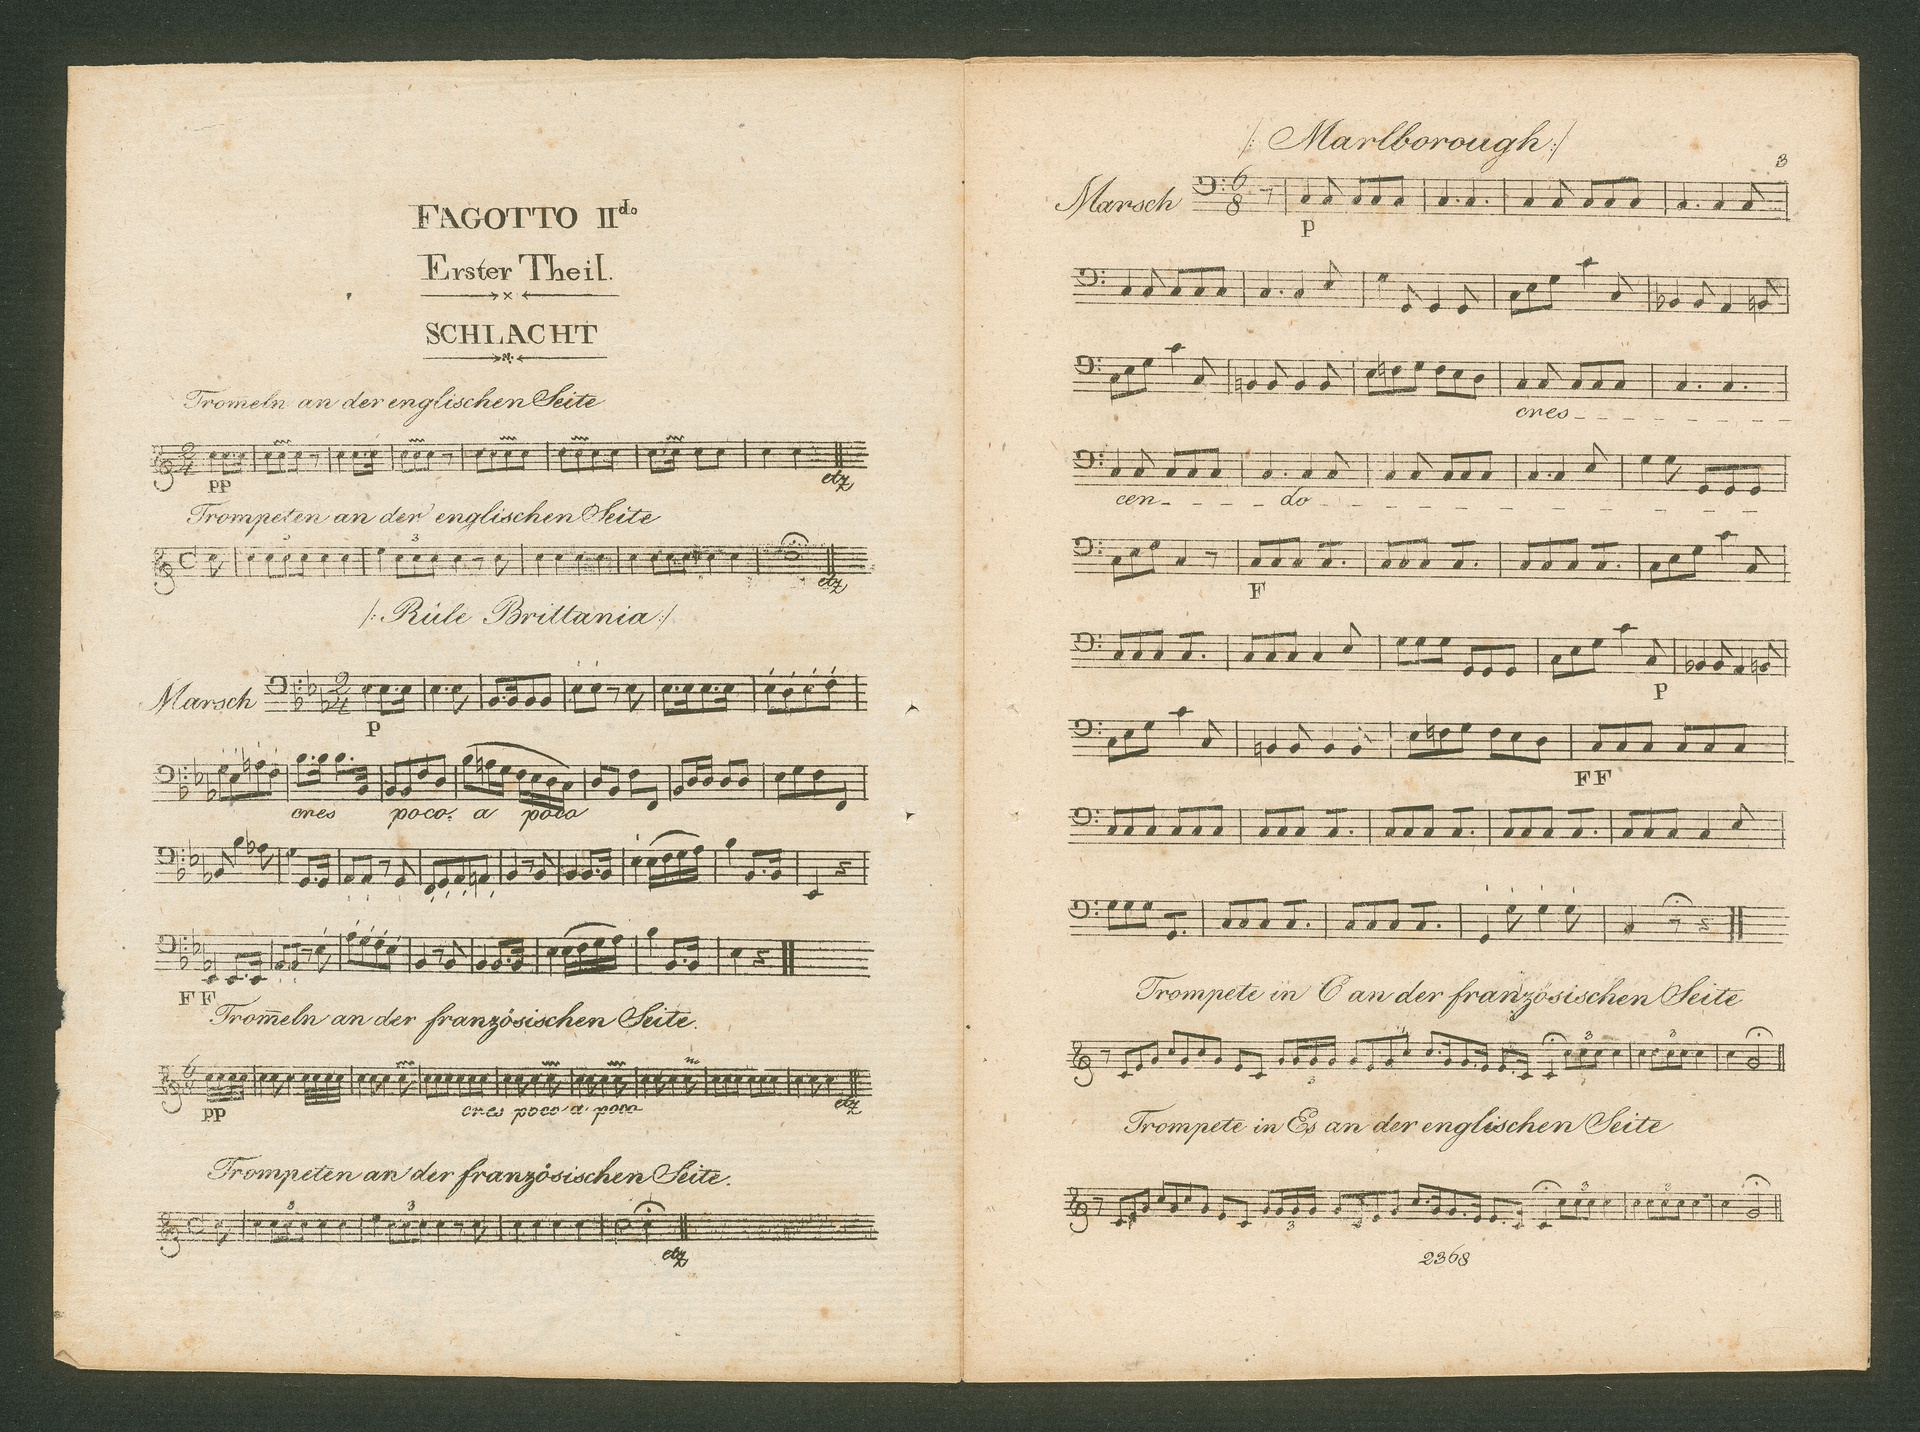 FAGOTTO II^do
Erster Theil.
SCHLACHT
Tromeln an der englischen Seite
pp
etz
Trompeten an der englischen Seite
3 3
etz
/: Rüle Brittania :/
Marsch
p
cres poco a poco
FF
Trom̅eln an der französischen Seite.
pp
cres poco a poco
etz
Trompeten an der französischen Seite.
3 3
etz
/: Marlborough :/
3
Marsch
p
cres
cen do
F
p
FF
Trompete in C an der französischen Seite
3 3 3
Trompete in Es an der englischen Seite
3 3 3
2368